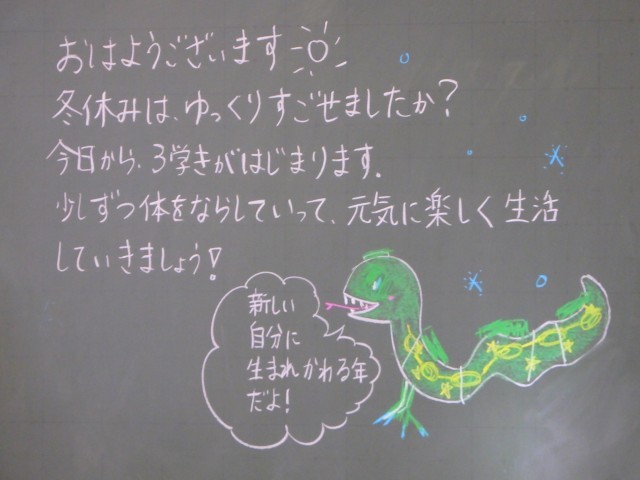 おはようございます
冬休みは、ゆっくりすごせましたか?
今日から、3学きがはじまります.
少しずつ体をならしていって、元気に楽しく生活
していきましょう!
新しい
自分に
生まれかわる年
だよ!